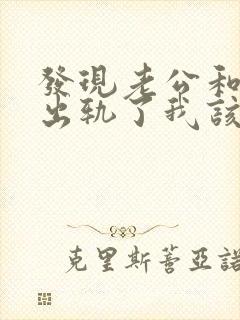 發現老公和
出軌了我該
克里斯蒼亞諾